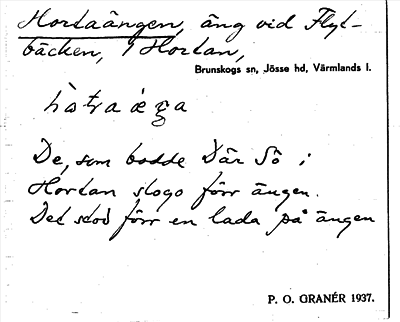 Hortaängen, äng vid Flyt-
bäcken, i Hortan,
Brunskogs sn, Jösse hd, Värmlands l.
De, som bodde Där Sö i
Hortan slogo förr ängen.
Det stod förr en lada på ängen
P. O. GRANÉR 1937.